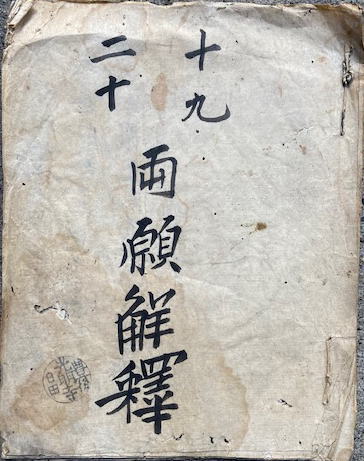 十九
二十
両願解釋